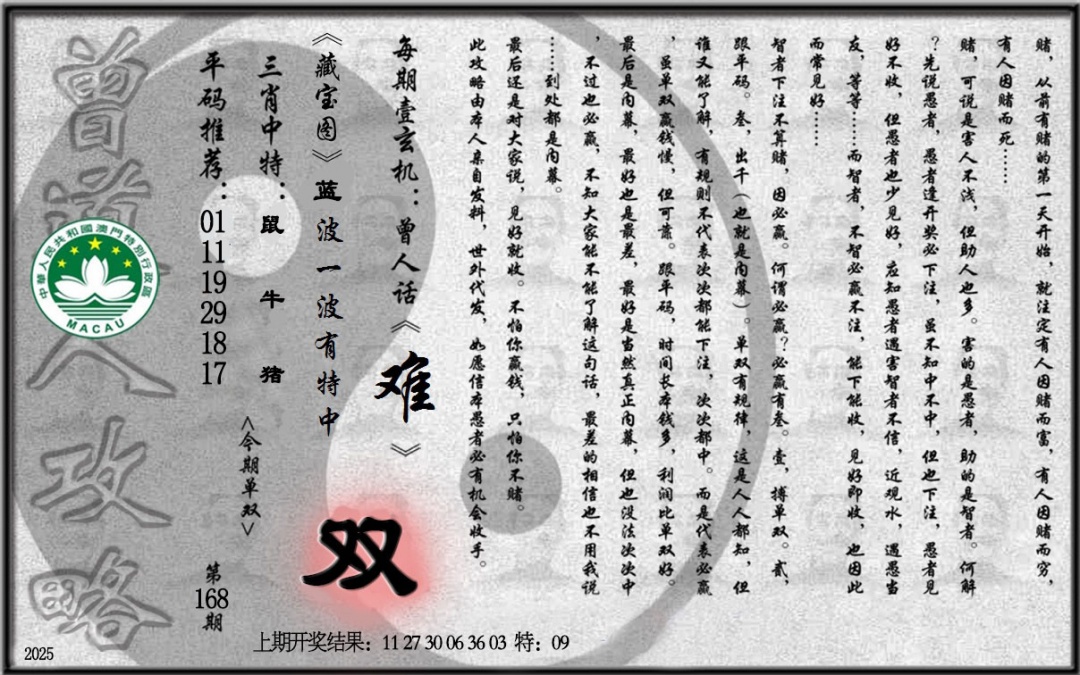 赌，从前有赌的第一天开始，就注定有人因赌而富，有人因赌而穷，
有人因赌而死……
赌，可说是害人不浅，但助人也多。害的是愚者，助的是智者。何解
？先说愚者，愚者逢开奖必下注，虽不知中不中，但也下注，愚者见
好不收，但愚者也少见好，应知愚者遇害智者不信，近观水，遇愚当
友，等等……而智者，不智必赢不注，能下能收，见好即收，也因此
而常见好……
智者下注不算赌，因必赢。何谓必赢？必赢有叁。壹，搏单双。贰，
跟平码。叁，出千（也就是内幕）。单双有规律，这是人人都知，但
谁又能了解，有规则不代表次次都能下注，次次都中。而是代表必赢
，虽单双赢钱慢，但可靠。跟平码，时间长本钱多，利润比单双好。
最后是内幕，最好也是最差，最好是当然真正内幕，但也没法次次中
，不过也必赢，不知大家能不能了解这句话，最差的相信也不用我说
……到处都是内幕。
最后还是对大家说，见好就收。不怕你赢钱，只怕你不赌。
此攻略由本人亲自发料，世外代发，如愿信本愚者必有机会收手。
每期壹玄机：曾人话《难》
《藏宝图》蓝波一波有特中
三肖中特：鼠 牛 猪
<今期单双>
双
平码推荐：01 11 19 29 18 17
第168期
曾道人攻略
中華人民共和國澳門特別行政區
MACAU
上期开奖结果：11 27 30 06 36 03 特：09
2025